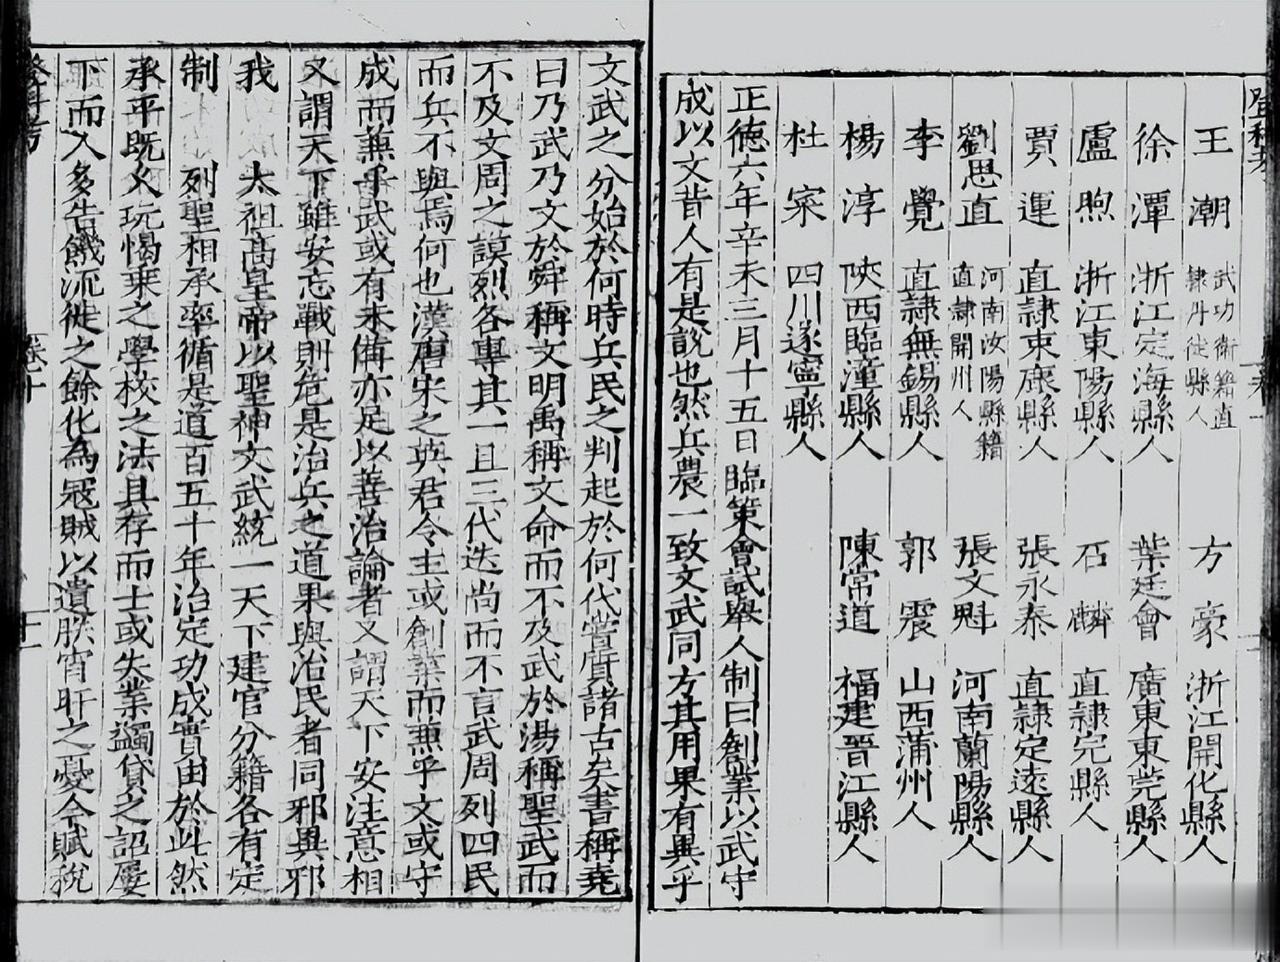 王潮 武功衛籍直隸丹徒縣人 方豪 浙江開化縣人
徐潭 浙江定海縣人 葉廷會 廣東東莞縣人
盧煦 浙江東陽縣人 石麟 直隸完縣人
賈運 直隸束鹿縣人 張永泰 直隸定遠縣人
劉思直 河南汝陽縣籍直隸開州人 張文魁 河南蘭陽縣人
李覺 直隸無錫縣人 郭震 山西蒲州人
楊淳 陝西臨潼縣人 陳常道 福建晉江縣人
杜寀 四川遂寧縣人
正德六年辛未三月十五日臨策會試舉人制曰創業以武守
成以文昔人有是說也然兵農一致文武同方其用果有異乎
文武之分始於何時兵民之判起於何代嘗質諸古矣書稱堯
曰乃武乃文於舜稱文明禹稱文命而不及武於湯稱聖武而
不及文周之謨烈各專其一且三代迭尚而不言武周列四民
而兵不與焉何也漢唐宋之英君令主或創業而兼乎文或守
成而兼乎武或有未備亦足以善治論者又謂天下安注意相
又謂天下雖安忘戰則危是治兵之道果與治民者同邪異邪
我 太祖高皇帝以聖神文武統一天下建官分籍各有定
制 列聖相承率循是道百五十年治定功成實由於此然
承平既久玩愒乘之學校之法具存而士或失業蠲貸之詔屢
下而人多告饑流徙之餘化為冦賊以遺朕宵旰之憂今賦稅
卷十
十一